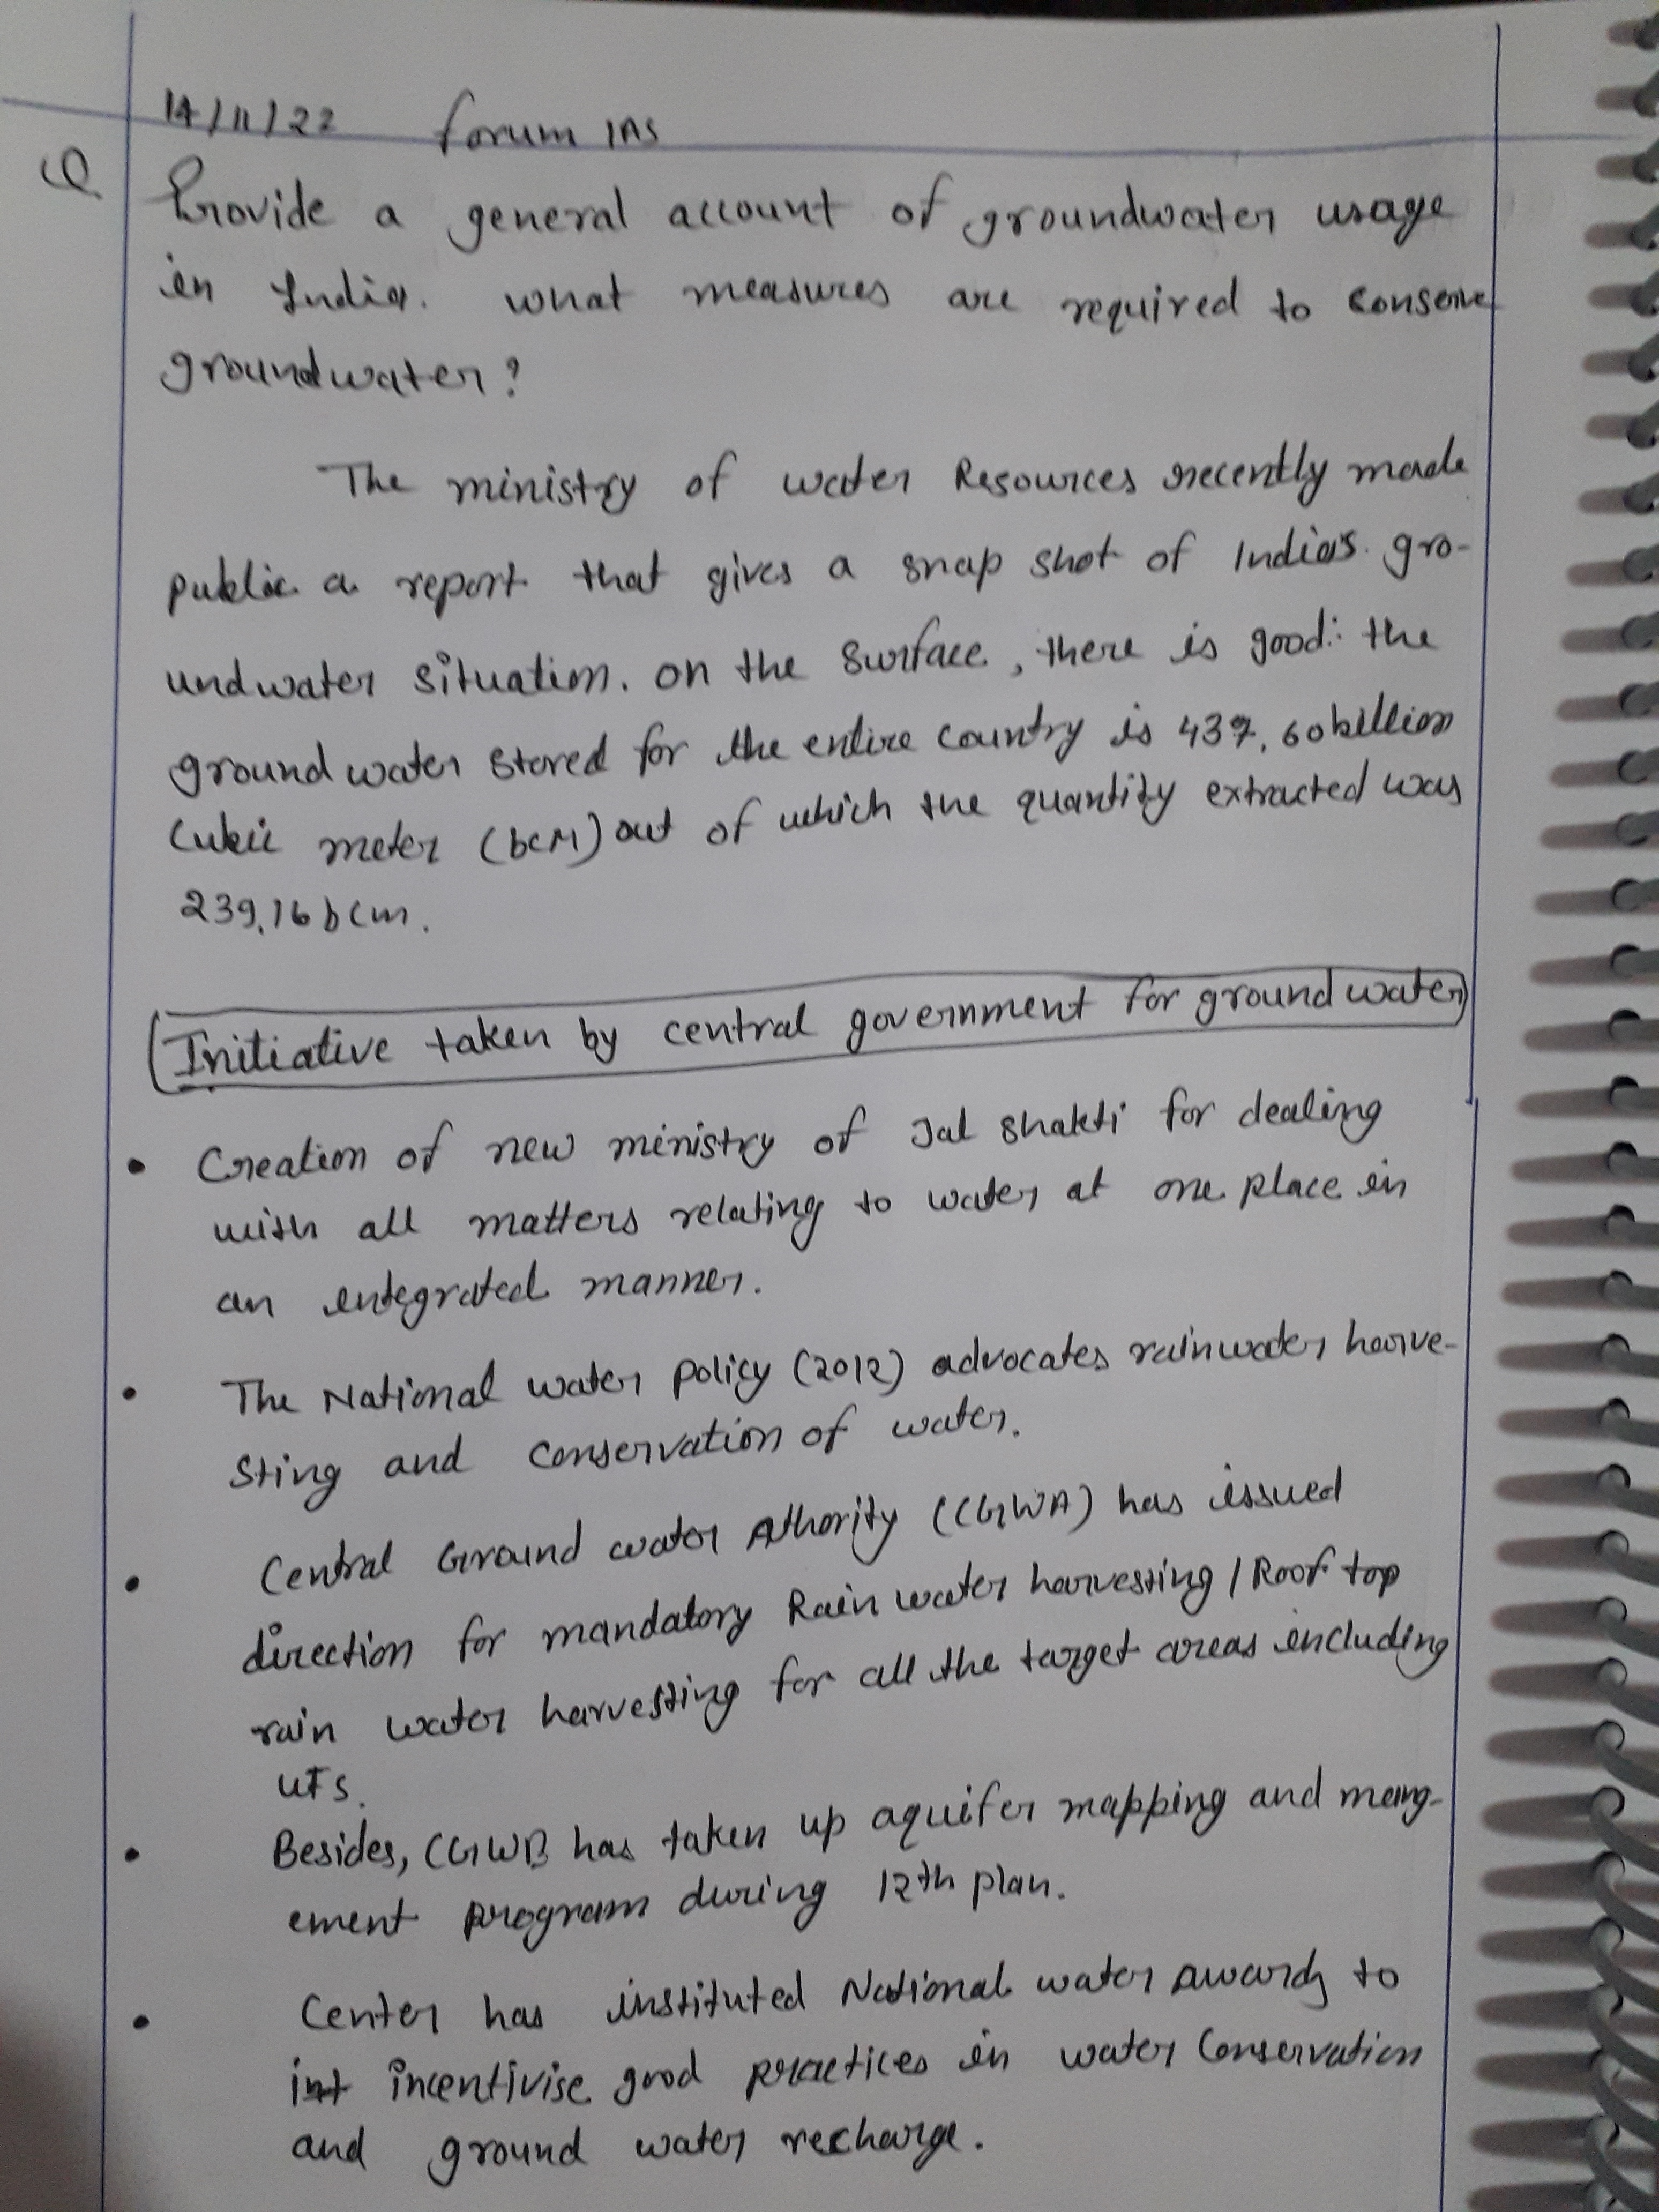 14/11/22 forum IAS
Q Provide a general account of groundwater usage
in India. what measures are required to conserve
groundwater?
The ministry of water Resources recently made
public a report that gives a snap shot of India's gro-
undwater situation. on the surface, there is good: the
ground water stored for the entire country is 437.60 billion
Cubic meter (bcM) out of which the quantity extracted was
239.16 bcm.
Initiative taken by central government for ground water
• Creation of new ministry of Jal shakti for dealing
with all matters relating to water at one place in
an integrated manner.
• The National water policy (2012) advocates rainwater harve-
sting and conservation of water.
• Central Ground water Athority (CGWA) has issued
direction for mandatory Rain water harvesting / Roof top
rain water harvesting for all the target areas including
UTs.
• Besides, CGWB has taken up aquifer mapping and mang-
ement program during 12th plan.
• Center has instituted National water awards to
int incentivise good practices in water conservation
and ground water recharge.